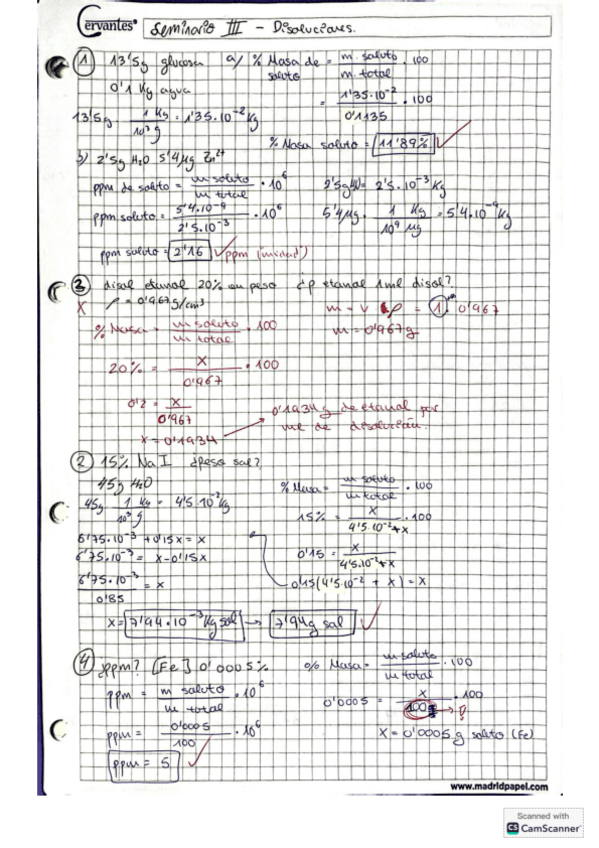 Cervantes® Seminario III - Disoluciones.
1 13'5g glucosa a) % Masa de soluto = m. soluto / m. total · 100
0'1 Kg agua = 1'35·10⁻² / 0'1135 · 100
13'5g · 1 Kg / 10³ g = 1'35·10⁻² Kg
% Masa soluto = 11'89%
b) 2'5g H₂O 5'4μg Zn²⁺
ppm de soluto = m soluto / m total · 10⁶ 2'5g = 2'5·10⁻³ Kg
ppm soluto = 5'4·10⁻⁹ / 2'5·10⁻³ · 10⁶ 5'4μg · 1 Kg / 10⁹ μg = 5'4·10⁻⁹ Kg
ppm soluto = 2'16 ppm (unidad)
3 disol etanol 20% en peso ¿p etanol 1ml disol?
X ρ = 0'967g/cm³ m = V · ρ = 1 · 0'967
% Masa = m soluto / m total · 100 m = 0'967g
20% = X / 0'967 · 100
0'2 = X / 0'967
0'1934 g de etanol por
X = 0'1934 ml de disolución.
2 15% NaI ¿peso sal?
45g H₂O % Masa = m soluto / m total · 100
45g · 1 Kg / 10³ g = 4'5·10⁻² Kg 15% = X / 4'5·10⁻²+x · 100
6'75·10⁻³ + 0'15x = x
6'75·10⁻³ = x - 0'15x 0'15 = X / 4'5·10⁻²+x
6'75·10⁻³ / 0'85 = x 0'15(4'5·10⁻² + x) = x
x = 7'94·10⁻³ Kg sol → 7'94g sal
4 ¿ppm? [Fe] 0'0005% % Masa = m soluto / m total · 100
ppm = m soluto / m total · 10⁶ 0'0005 = X / 100 · 100
ppm = 0'0005 / 100 · 10⁶ X = 0'0005 g soluto (Fe)
ppm = 5
www.madridpapel.com
Scanned with
CS CamScanner